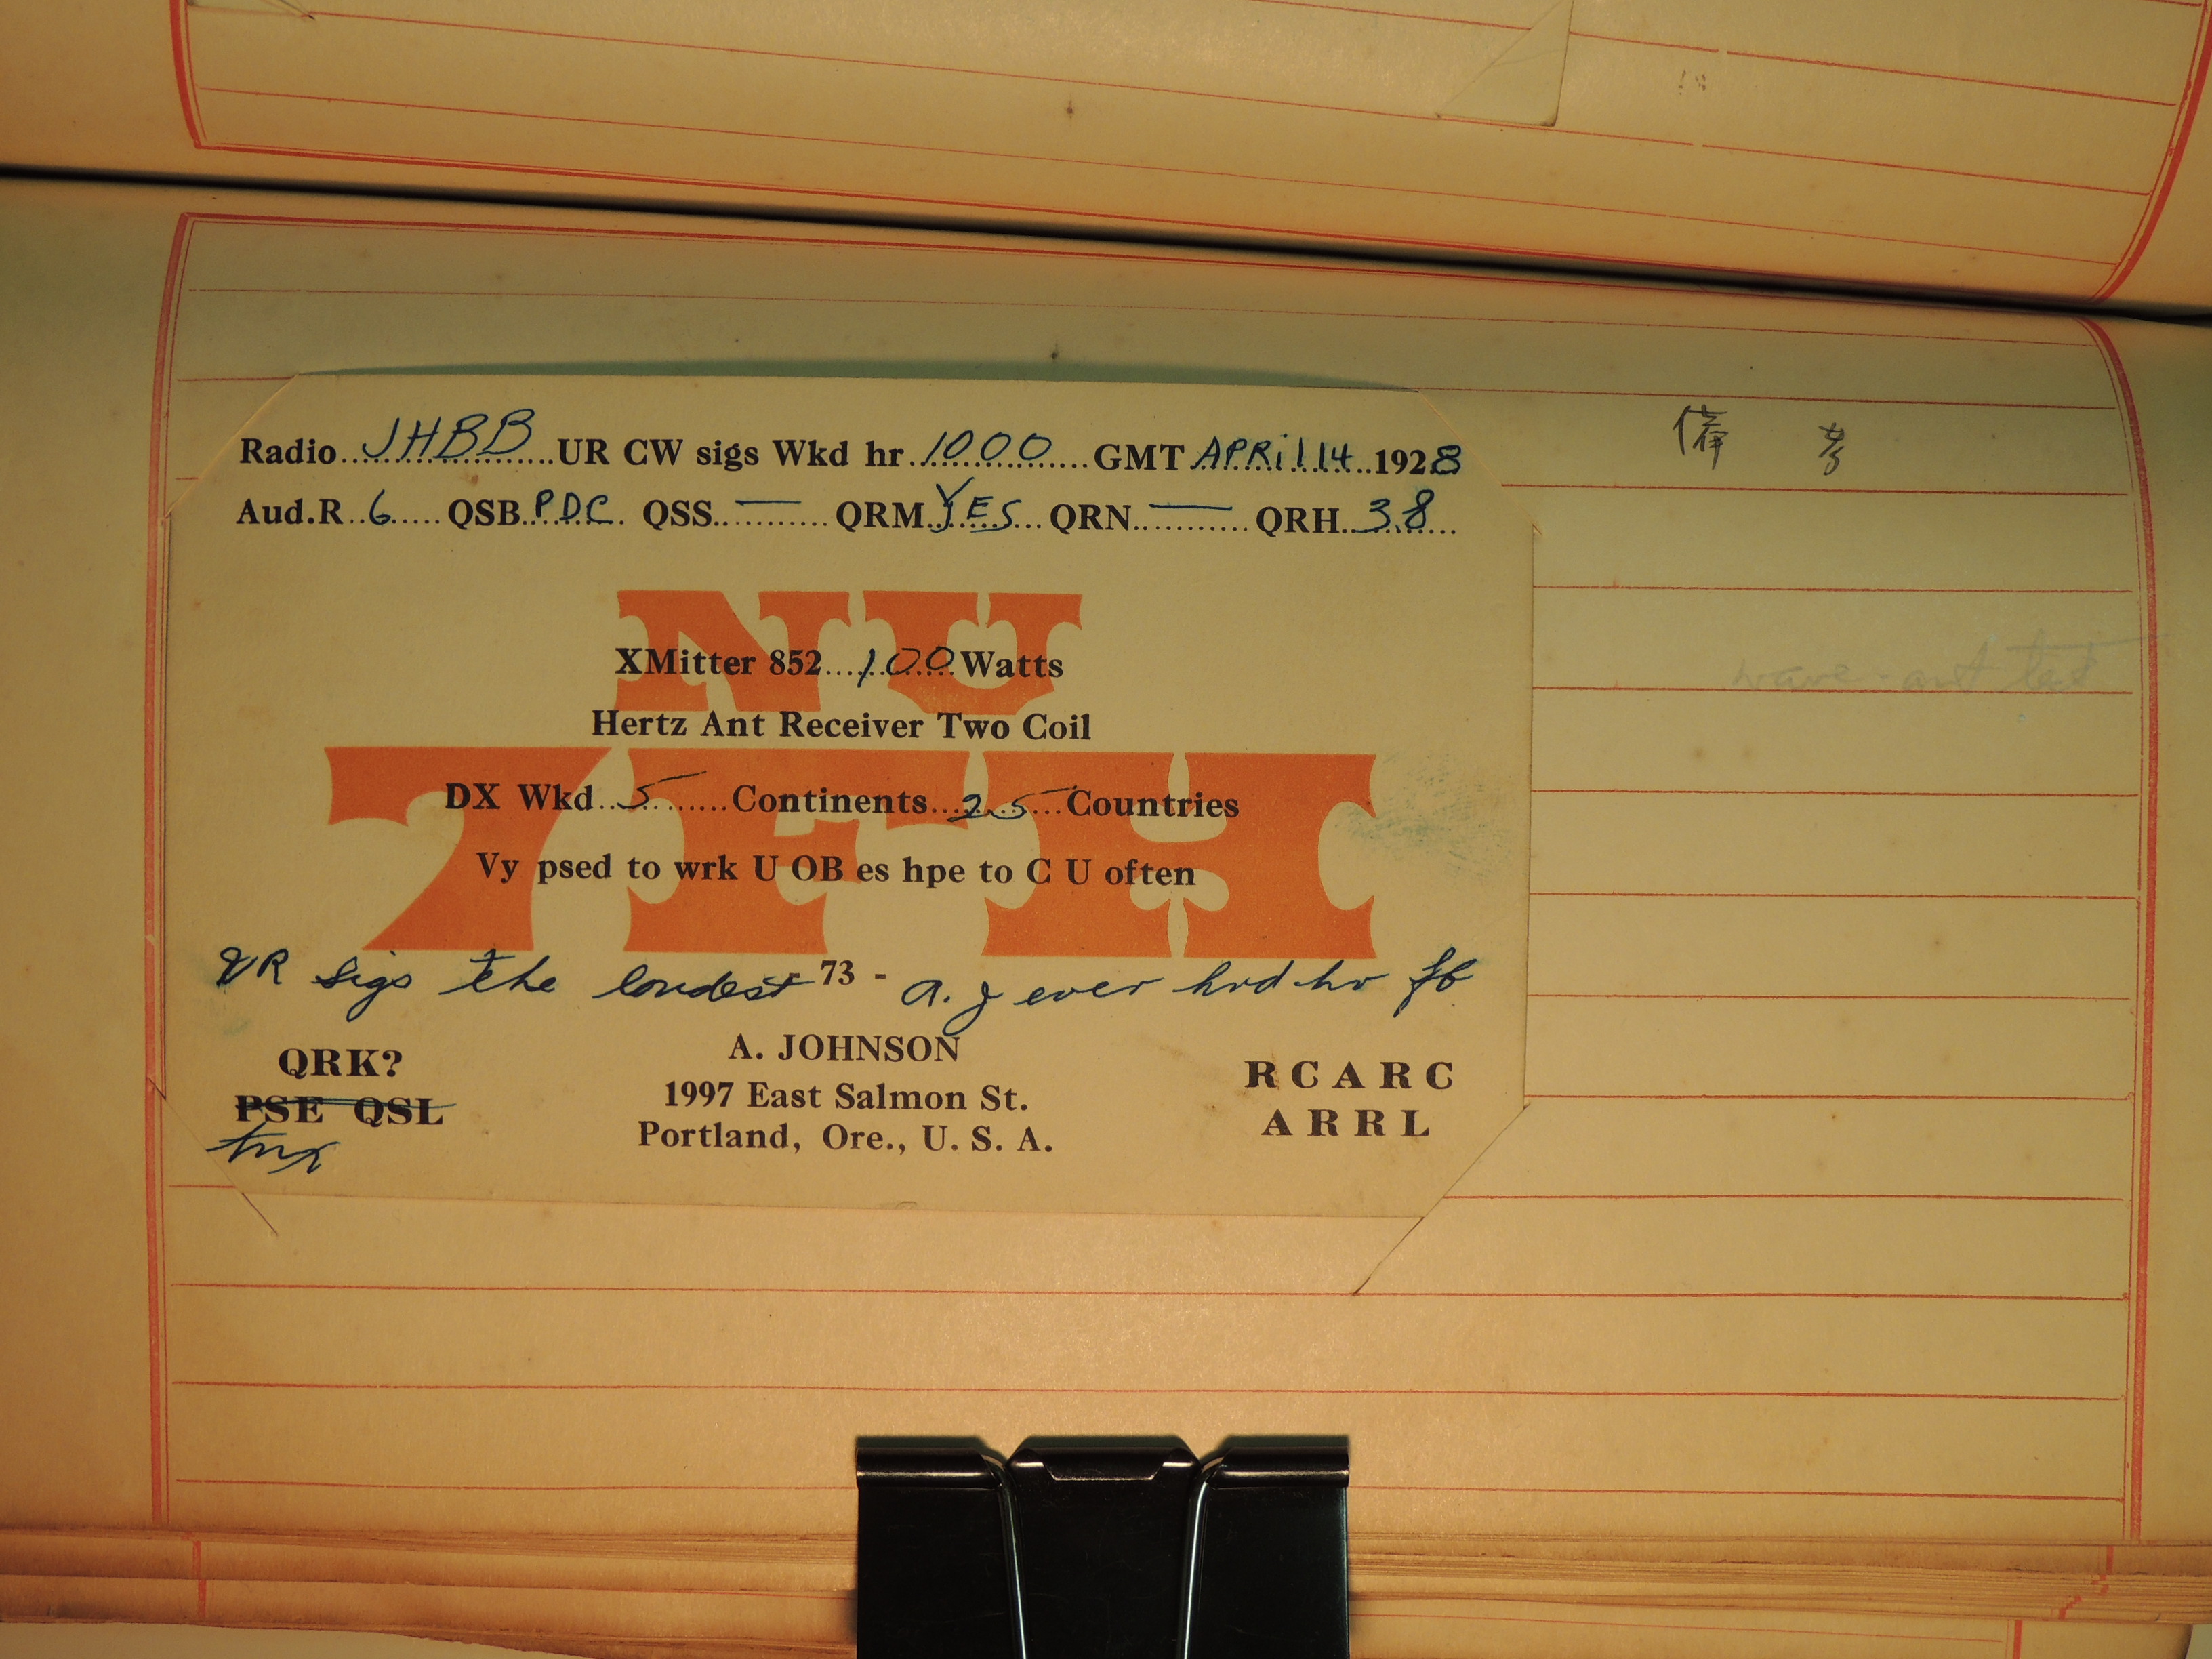 Radio JHBB UR CW sigs Wkd hr 1000 GMT APRil 14 1928
Aud.R 6 QSB PDC QSS — QRM YES QRN — QRH 38
NU
XMitter 852 100 Watts
Hertz Ant Receiver Two Coil
7FH
DX Wkd 5 Continents 25 Countries
Vy psed to wrk U OB es hpe to C U often
UR sigs the loudest - 73 - a. J ever hrd hr fb
QRK?
PSE QSL
tnx
A. JOHNSON
1997 East Salmon St.
Portland, Ore., U. S. A.
RCARC
ARRL
備考
wave - ant